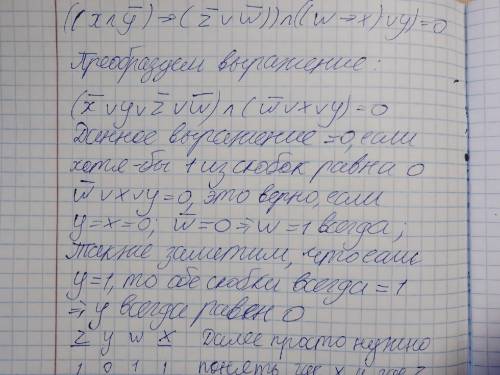 ((x∧y̅)→(z̅∨w̅))∧((w→x)∨y)=0
Преобразуем выражение:
(x̅∨y∨z̅∨w̅)∧(w̅∨x∨y)=0
Данное выражение =0, если
хотя-бы 1 из скобок равна 0
w̅∨x∨y=0, это верно, если
y=x=0; w̅=0⇒w=1 всегда;
Также заметим, что если
y=1, то обе скобки всегда =1
⇒ y всегда равен 0
z y w x Далее просто нужно
1 0 1 1 понять где x и где z